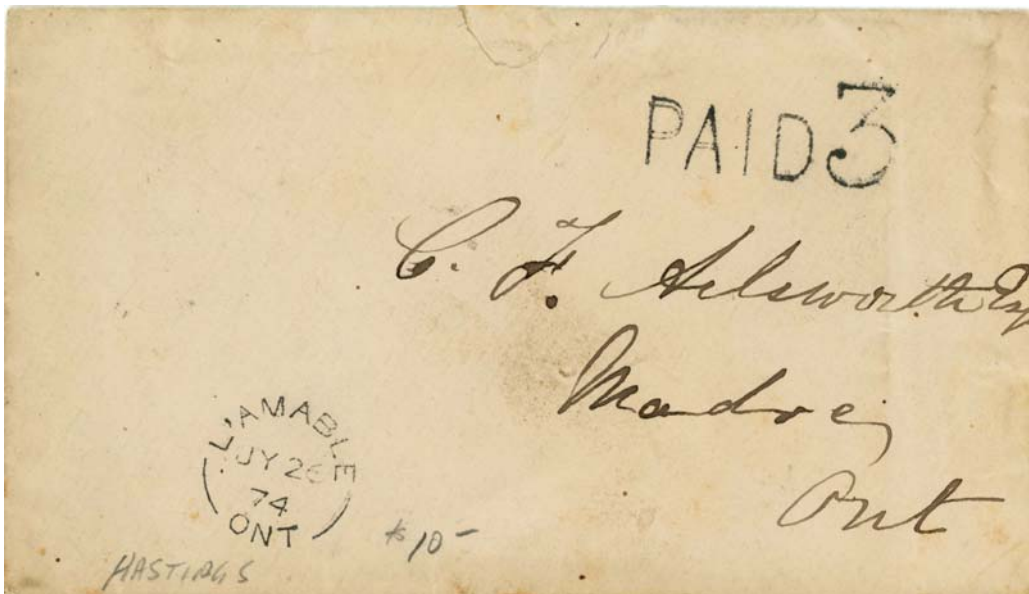 PAID 3
C. F. Aelsworth Esq
Madoc,
Ont
L'AMABLE
JY 26
74
ONT
$10-
HASTINGS